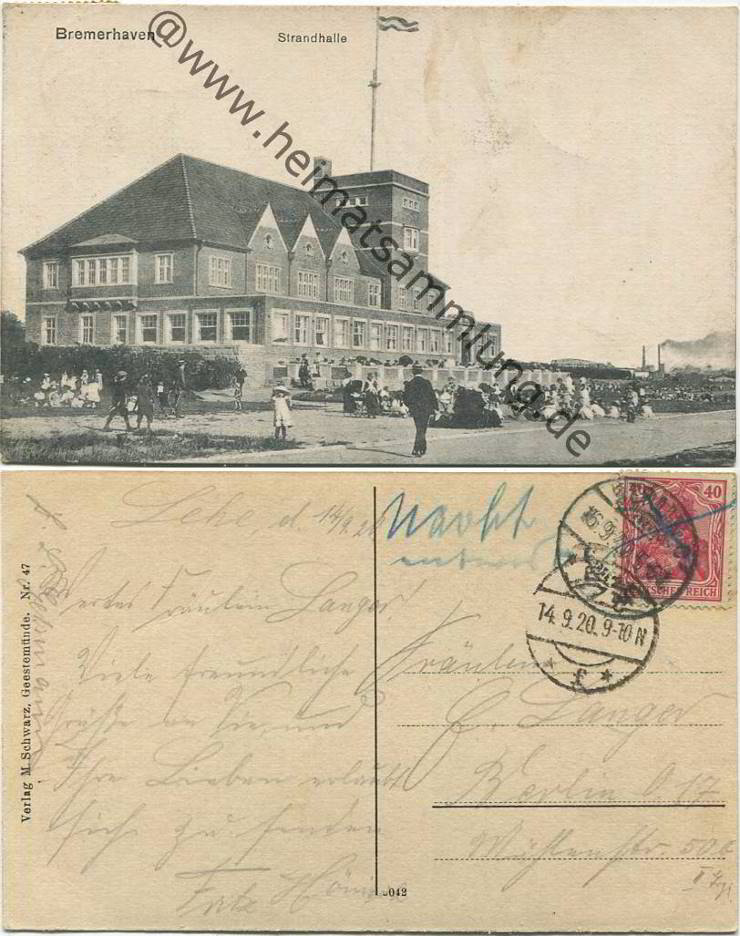 Bremerhaven
Strandhalle
@www.heimatsammlung.de
Verlag M. Schwarz, Geestemünde. Nr. 47
Lehe, d. 14/9.20
Wertes Fräulein Langer!
Viele freundliche
Grüße an Sie und
Ihre Lieben erlaubt
sich zu senden
Fritz
40
DEUTSCHES REICH
14.9.20.9-10N
Fräulein
E. Langer
Berlin O.17
Mühlenstr. 50